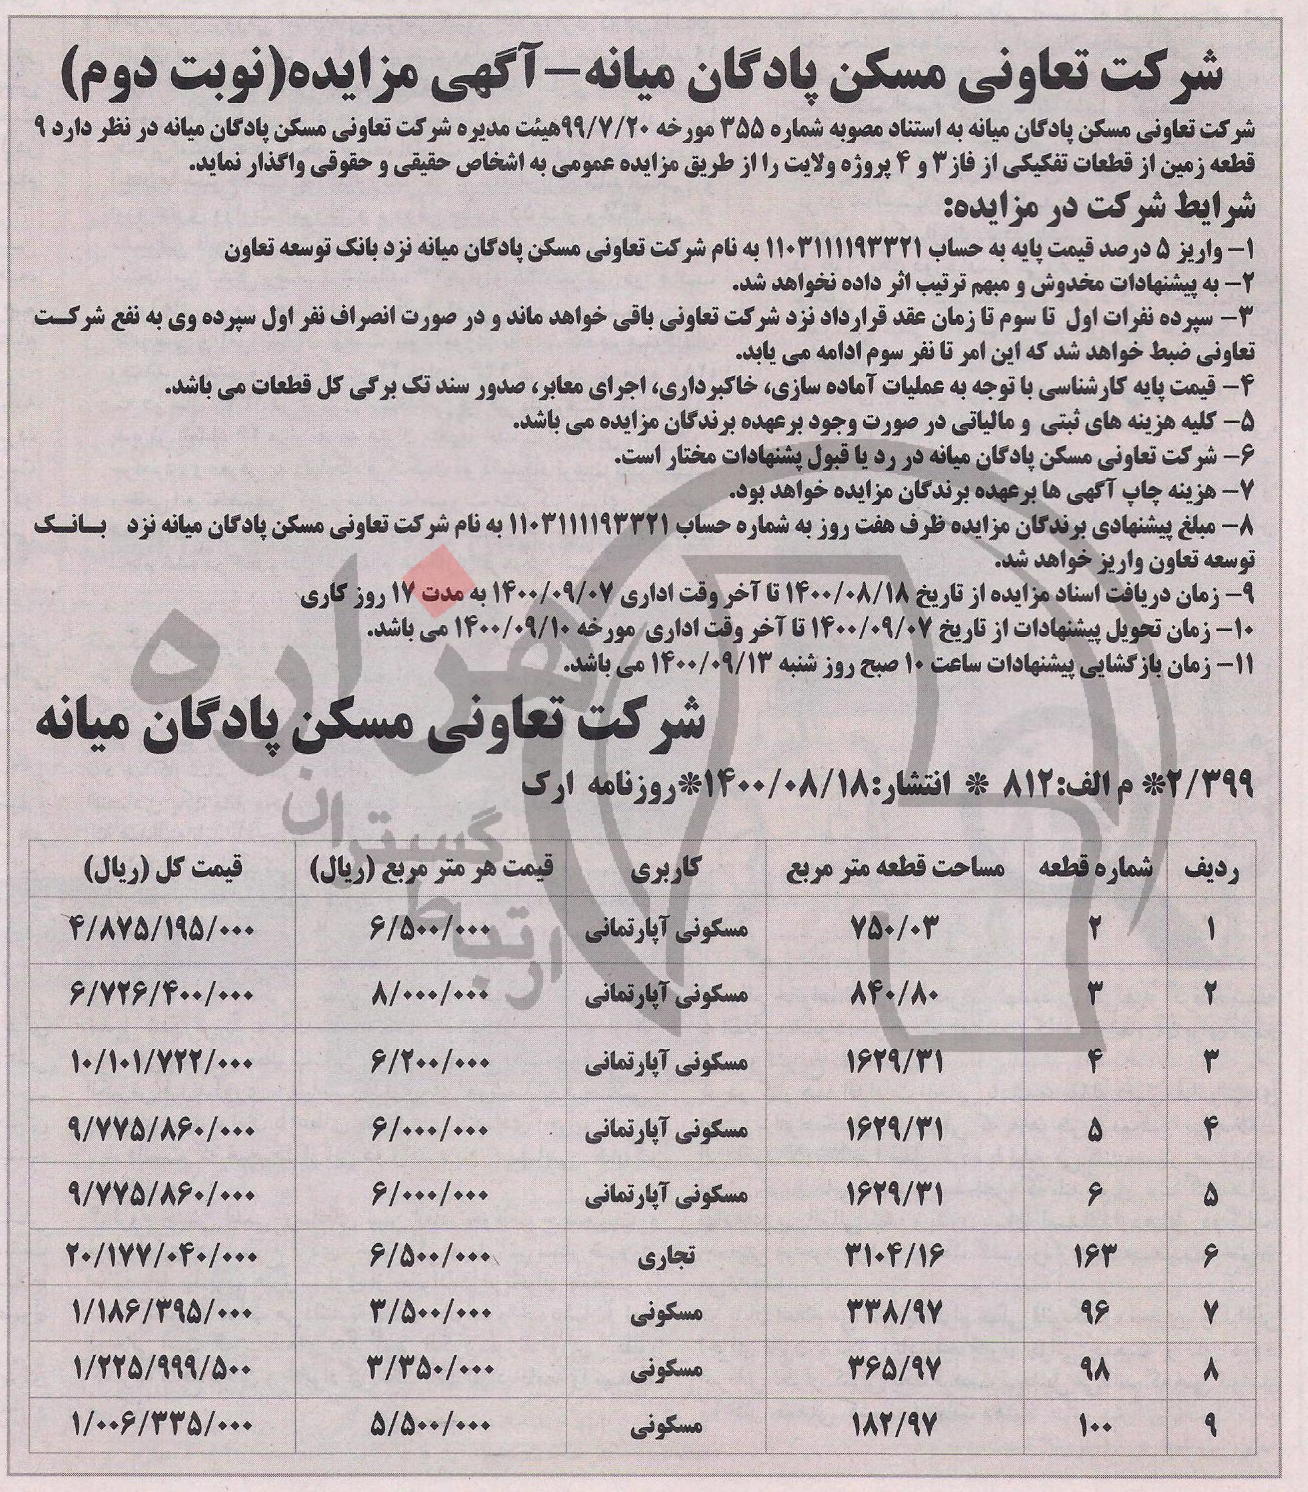 شرکت تعاونی مسکن پادگان میانه-آگهی مزایده(نوبت دوم)
شرکت تعاونی مسکن پادگان میانه به استناد مصوبه شماره ۳۵۵ مورخه ۹۹/۷/۲۰هیئت مدیره شرکت تعاونی مسکن پادگان میانه در نظر دارد ۹
قطعه زمین از قطعات تفکیکی از فاز۳ و ۴ پروژه ولایت را از طریق مزایده عمومی به اشخاص حقیقی و حقوقی واگذار نماید.
شرایط شرکت در مزایده:
۱- واریز ۵ درصد قیمت پایه به حساب ۱۱۰۳۱۱۱۱۹۳۳۲۱ به نام شرکت تعاونی مسکن پادگان میانه نزد بانک توسعه تعاون
۲- به پیشنهادات مخدوش و مبهم ترتیب اثر داده نخواهد شد.
۳- سپرده نفرات اول تا سوم تا زمان عقد قرارداد نزد شرکت تعاونی باقی خواهد ماند و در صورت انصراف نفر اول سپرده وی به نفع شرکت
تعاونی ضبط خواهد شد که این امر تا نفر سوم ادامه می یابد.
۴- قیمت پایه کارشناسی با توجه به عملیات آماده سازی، خاکبرداری، اجرای معابر، صدور سند تک برگی کل قطعات می باشد.
۵- کلیه هزینه های ثبتی و مالیاتی در صورت وجود برعهده برندگان مزایده می باشد.
۶- شرکت تعاونی مسکن پادگان میانه در رد یا قبول پشنهادات مختار است.
۷- هزینه چاپ آگهی ها برعهده برندگان مزایده خواهد بود.
۸- مبلغ پیشنهادی برندگان مزایده ظرف هفت روز به شماره حساب ۱۱۰۳۱۱۱۱۹۳۳۲۱ به نام شرکت تعاونی مسکن پادگان میانه نزد بانک
توسعه تعاون واریز خواهد شد.
۹- زمان دریافت اسناد مزایده از تاریخ ۱۴۰۰/۰۸/۱۸ تا آخر وقت اداری ۱۴۰۰/۰۹/۰۷ به مدت ۱۷ روز کاری
۱۰- زمان تحویل پیشنهادات از تاریخ ۱۴۰۰/۰۹/۰۷ تا آخر وقت اداری مورخه ۱۴۰۰/۰۹/۱۰ می باشد.
۱۱- زمان بازگشایی پیشنهادات ساعت ۱۰ صبح روز شنبه ۱۴۰۰/۰۹/۱۳ می باشد.
شرکت تعاونی مسکن پادگان میانه
۲/۳۹۹* م الف:۸۱۲ * انتشار:۱۴۰۰/۰۸/۱۸*روزنامه ارک
هزاره
گستران
ارتباط
ردیف شماره قطعه مساحت قطعه متر مربع کاربری قیمت هر متر مربع (ریال) قیمت کل (ریال)
۱ ۲ ۷۵۰/۰۳ مسکونی آپارتمانی ۶/۵۰۰/۰۰۰ ۴/۸۷۵/۱۹۵/۰۰۰
۲ ۳ ۸۴۰/۸۰ مسکونی آپارتمانی ۸/۰۰۰/۰۰۰ ۶/۷۲۶/۴۰۰/۰۰۰
۳ ۴ ۱۶۲۹/۳۱ مسکونی آپارتمانی ۶/۲۰۰/۰۰۰ ۱۰/۱۰۱/۷۲۲/۰۰۰
۴ ۵ ۱۶۲۹/۳۱ مسکونی آپارتمانی ۶/۰۰۰/۰۰۰ ۹/۷۷۵/۸۶۰/۰۰۰
۵ ۶ ۱۶۲۹/۳۱ مسکونی آپارتمانی ۶/۰۰۰/۰۰۰ ۹/۷۷۵/۸۶۰/۰۰۰
۶ ۱۶۳ ۳۱۰۴/۱۶ تجاری ۶/۵۰۰/۰۰۰ ۲۰/۱۷۷/۰۴۰/۰۰۰
۷ ۹۶ ۳۳۸/۹۷ مسکونی ۳/۵۰۰/۰۰۰ ۱/۱۸۶/۳۹۵/۰۰۰
۸ ۹۸ ۳۶۵/۹۷ مسکونی ۳/۳۵۰/۰۰۰ ۱/۲۲۵/۹۹۹/۵۰۰
۹ ۱۰۰ ۱۸۲/۹۷ مسکونی ۵/۵۰۰/۰۰۰ ۱/۰۰۶/۳۳۵/۰۰۰